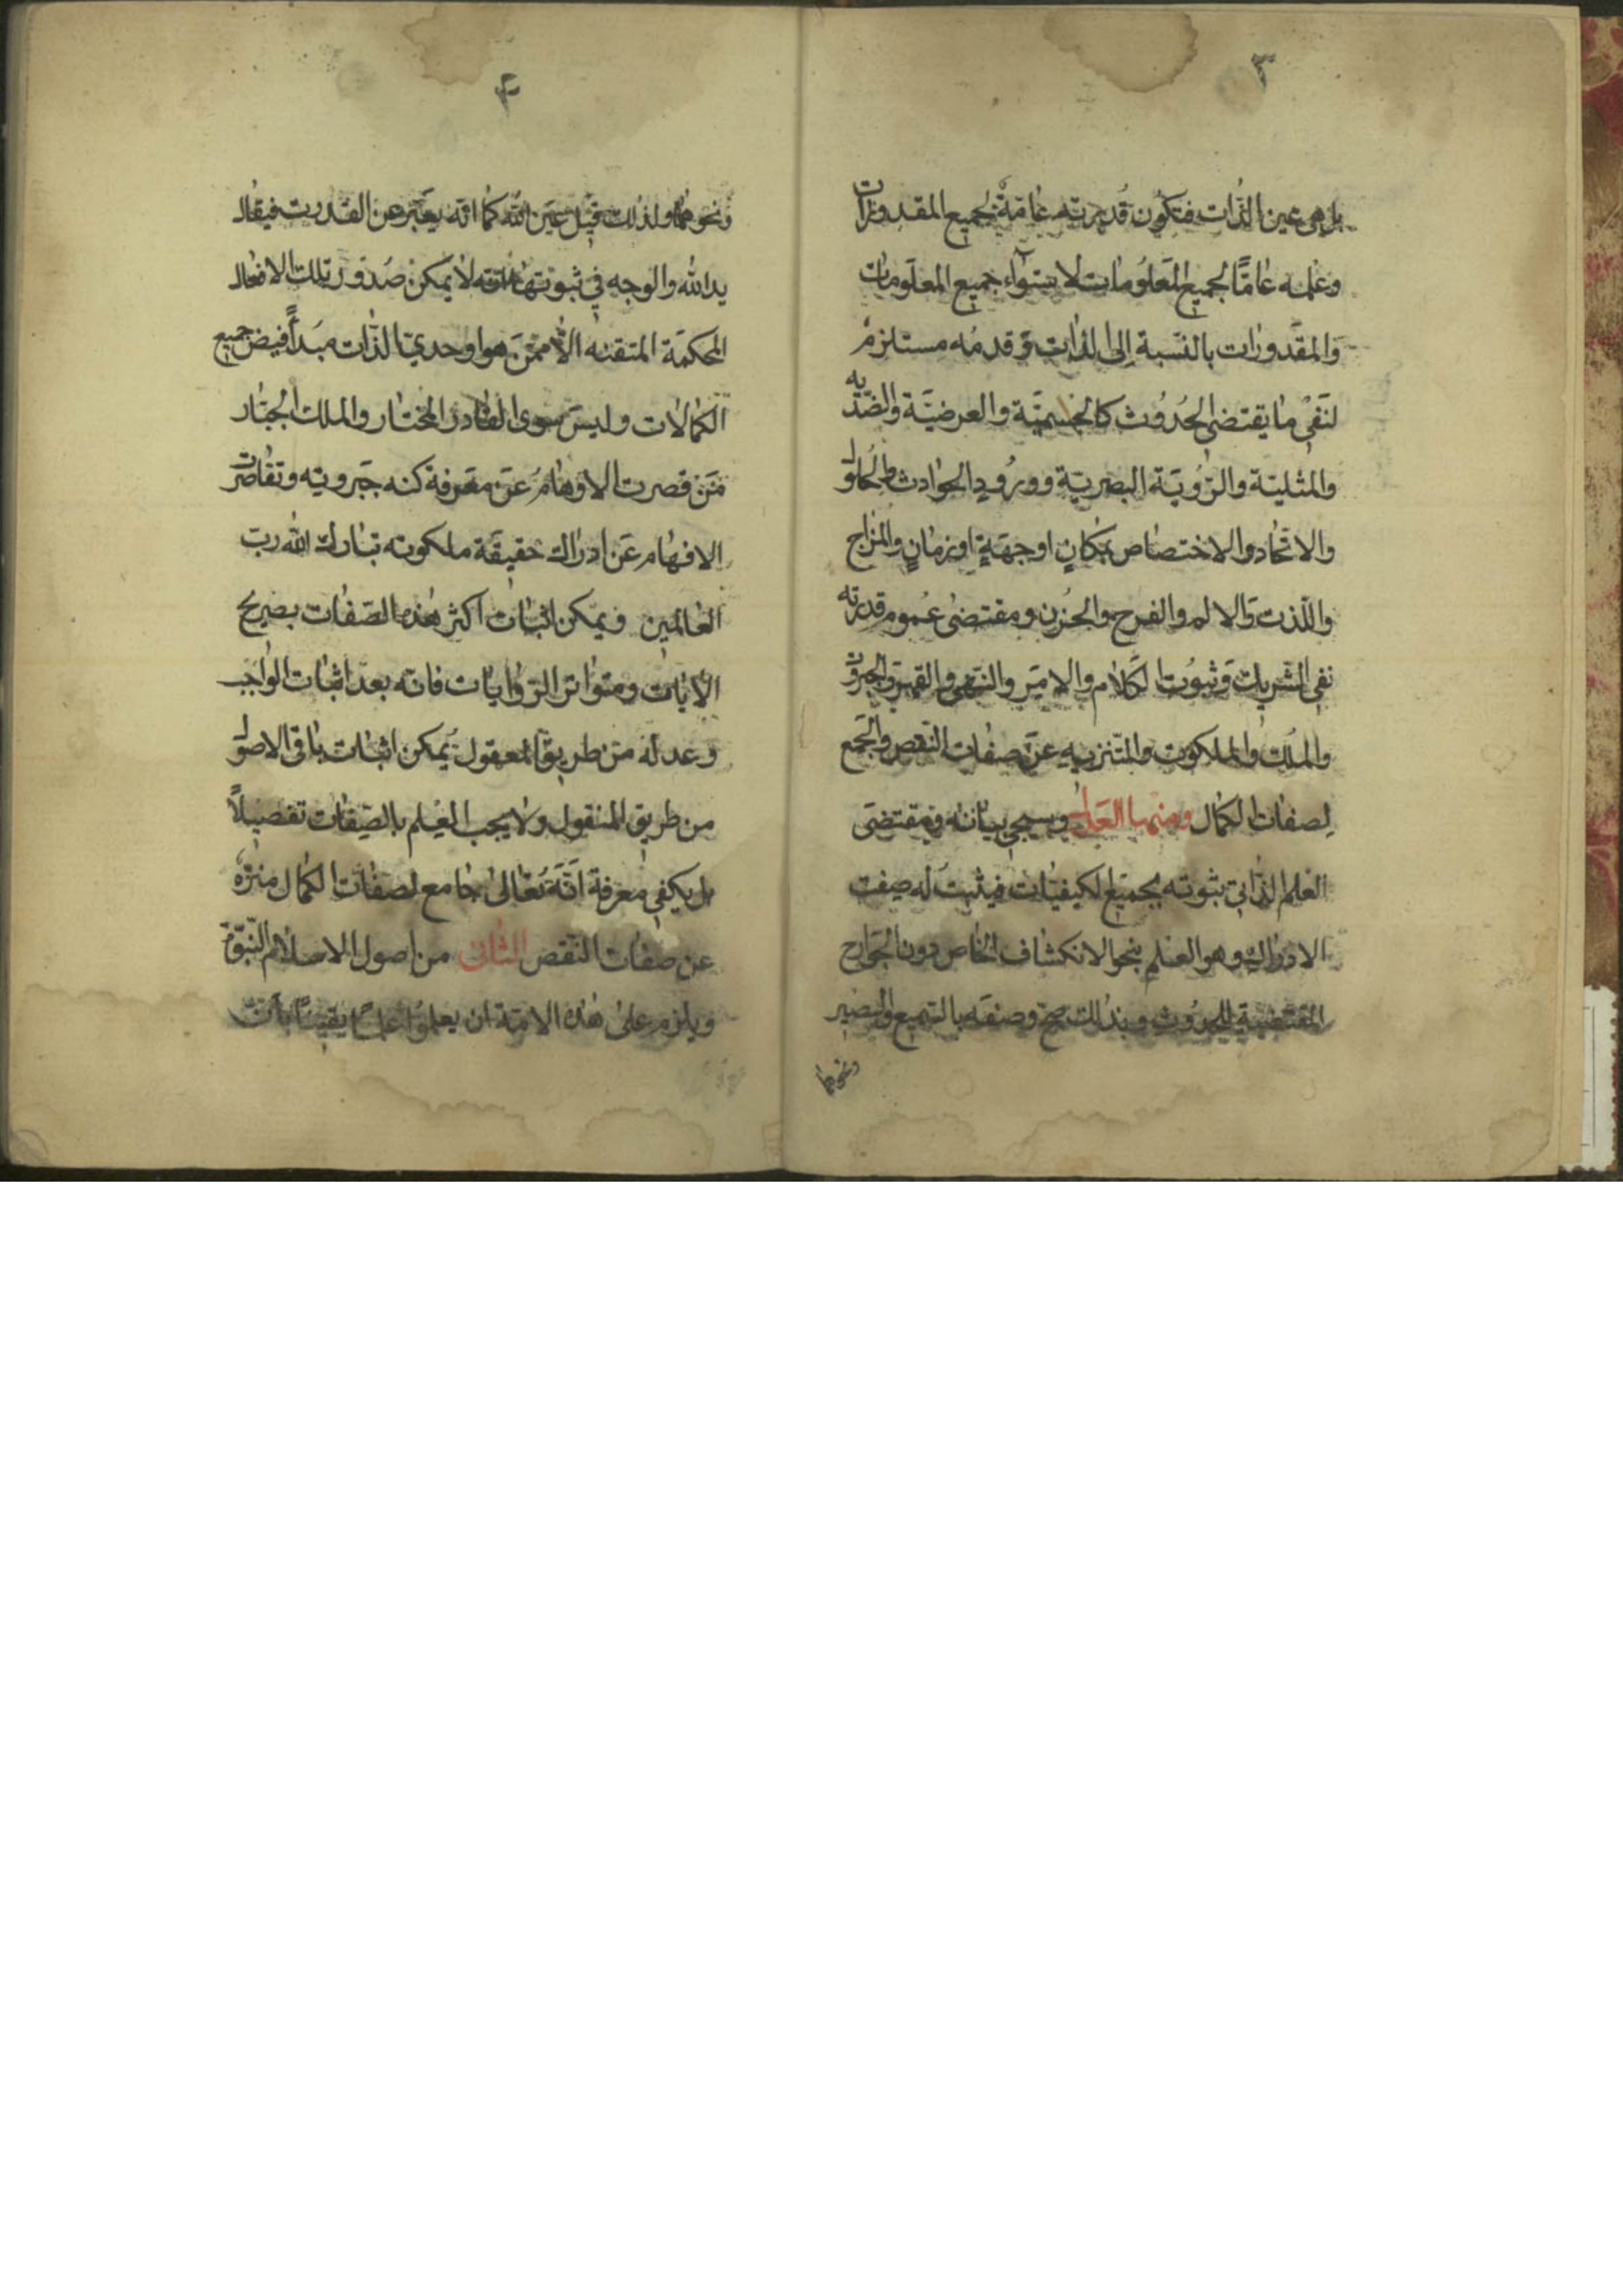 ٣
بل هي عين الذات فتكون قدرته عامّة لجميع المقدورات
وعلمه عامًّا لجميع المعلومات لاستواء جميع المعلومات
والمقدورات بالنسبة إلى الذات وقدمه مستلزم
لنفي ما يقتضي الحدوث كالجسميّة والعرضيّة والضدّيه
والمثليّة والرّؤيَة البصريّة وورود الحوادث والحلول
والاتّحاد والاختصاص بمكانٍ او جهةٍ او زمانٍ والمزاج
واللّذت والالم والفرح والحزن ومقتضى عموم قدرته
نفي الشريك وثبوت الكلام والامر والنّهي والقهر والجبروت
والملك والملكوت والتّنزيه عن صفات النّقص والجمع
لصفات الكمال ومنها العدل وسيجيء بيانه ومقتضى
العلم الذاتي ثبوته بجميع الكيفيّات فيثبت له صفت
الادراك وهو العلم بنحو الانكشاف الخاص دون الجوارح
المقتضية للحدوث وبذلك صحّ وصفه بالسّميع والبصير
ونحوهما
۴
ونحوهما ولذلك قيل عين اللّه كما انّه يعبّر عن القدرت فيقال
يد اللّه والوجه في ثبوتها انّه لا يمكن صدور تلك الافعال
المحكمة المتقنه الّا ممّن هو اوحديّ الذّات مبدأً فيض جميع
الكمالات وليس سوى القادر المختار والملك الجبّار
من قصرت الاوهام عن معرفة كنه جبروته وتقاصرت
الافهام عن ادراك حقيقة ملكوته تبارك اللّه ربّ
العالمين ويمكن اثبات اكثر هذه الصّفات بصريح
الآيات ومتواتر الرّوايات فانّه بعد اثبات الواجب
وعدله من طريق المعقول يمكن اثبات باقي الاصول
من طريق المنقول ولا يجب العلم بالصّفات تفصيلاً
بل يكفي معرفة انّه تعالى جامع لصفات الكمال منزّه
عن صفات النّقص الثاني من اصول الاسلام النّبوّة
ويلزم على هذه الامّة ان يعلموا علمًا يقينًا بانّ